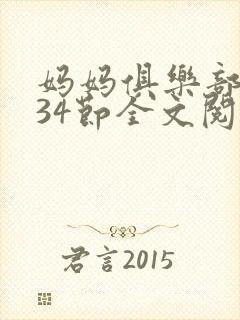 妈妈俱樂部
34节全文閱
君言2015